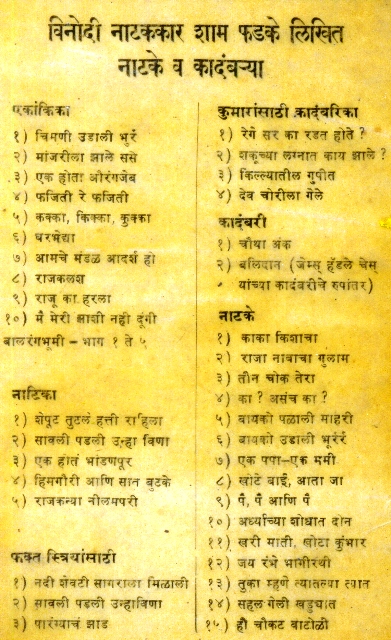 विनोदी नाटककार शाम फडके लिखित
नाटके व कादंबऱ्या
एकांकिका
१) चिमणी उडाली भुर्र
२) मांजरीला झाले ससे
३) एक होता औरंगजेब
४) फजिती रे फजिती
५) कक्का, किक्का, कुक्का
६) घरभेद्या
७) आमचे मंडळ आदर्श हो
८) राजकलश
९) राजू का हरला
१०) मै मेरी झाशी नही दूंगी
बालरंगभूमी – भाग १ ते ५
नाटिका
१) शेपूट तुटलं हत्ती राहूला
२) सावली पडली उन्हा विणा
३) एक होतं भांडणपूर
४) हिमगौरी आणि सात बुटके
५) राजकन्या नीलमपरी
फक्त स्त्रियांसाठी
१) नदी शेवटी सागराला मिळाली
२) सावली पडली उन्हाविणा
३) पारंब्याचं झाड
कुमारांसाठी कादंबरिका
१) रेगे सर का रडत होते ?
२) शकूच्या लग्नात काय झाले ?
३) किल्ल्यातील गुपीत
४) देव चोरीला गेले
कादंबरी
१) चौथा अंक
२) बलिदान (जेम्स् हॅडले चेस्
यांच्या कादंबरीचे रुपांतर)
नाटके
१) काका किशाचा
२) राजा नावाचा गुलाम
३) तीन चोक तेरा
४) का ? असंच का ?
५) बायको पळाली माहेरी
६) बायको उडाली भुर्रर्र
७) एक पपा–एक ममी
८) खोटे बाई, आता जा
९) पॅं, पॅं आणि पॅं
१०) अर्ध्याच्या शोधात दोन
११) खरी माती, खोटा कुंभार
१२) जय रंभे भागीरथी
१३) तुका म्हणे त्यातल्या त्यात
१४) सहल गेली खड्ड्यात
१५) ही चौकट वाटोळी